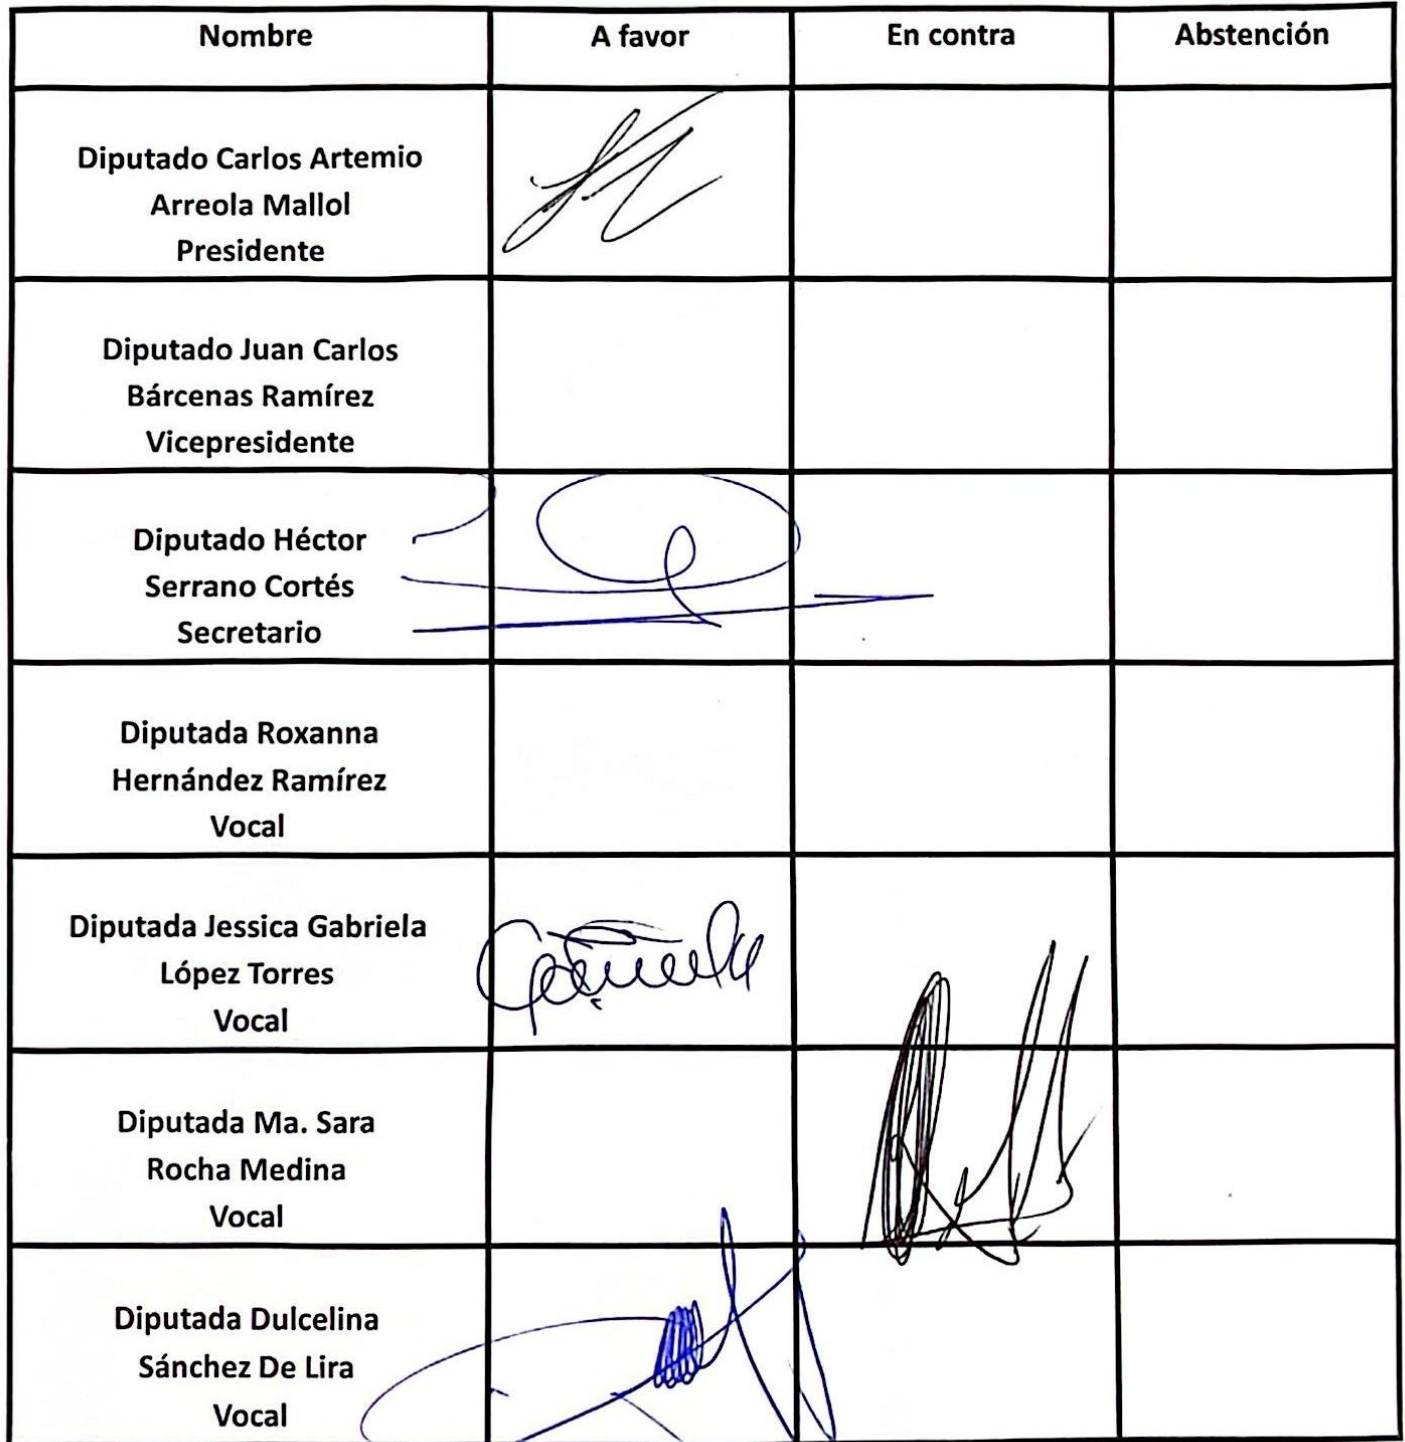 Nombre A favor En contra Abstención
Diputado Carlos Artemio
Arreola Mallol
Presidente
Diputado Juan Carlos
Bárcenas Ramírez
Vicepresidente
Diputado Héctor
Serrano Cortés
Secretario
Diputada Roxanna
Hernández Ramírez
Vocal
Diputada Jessica Gabriela
López Torres
Vocal
Diputada Ma. Sara
Rocha Medina
Vocal
Diputada Dulcelina
Sánchez De Lira
Vocal